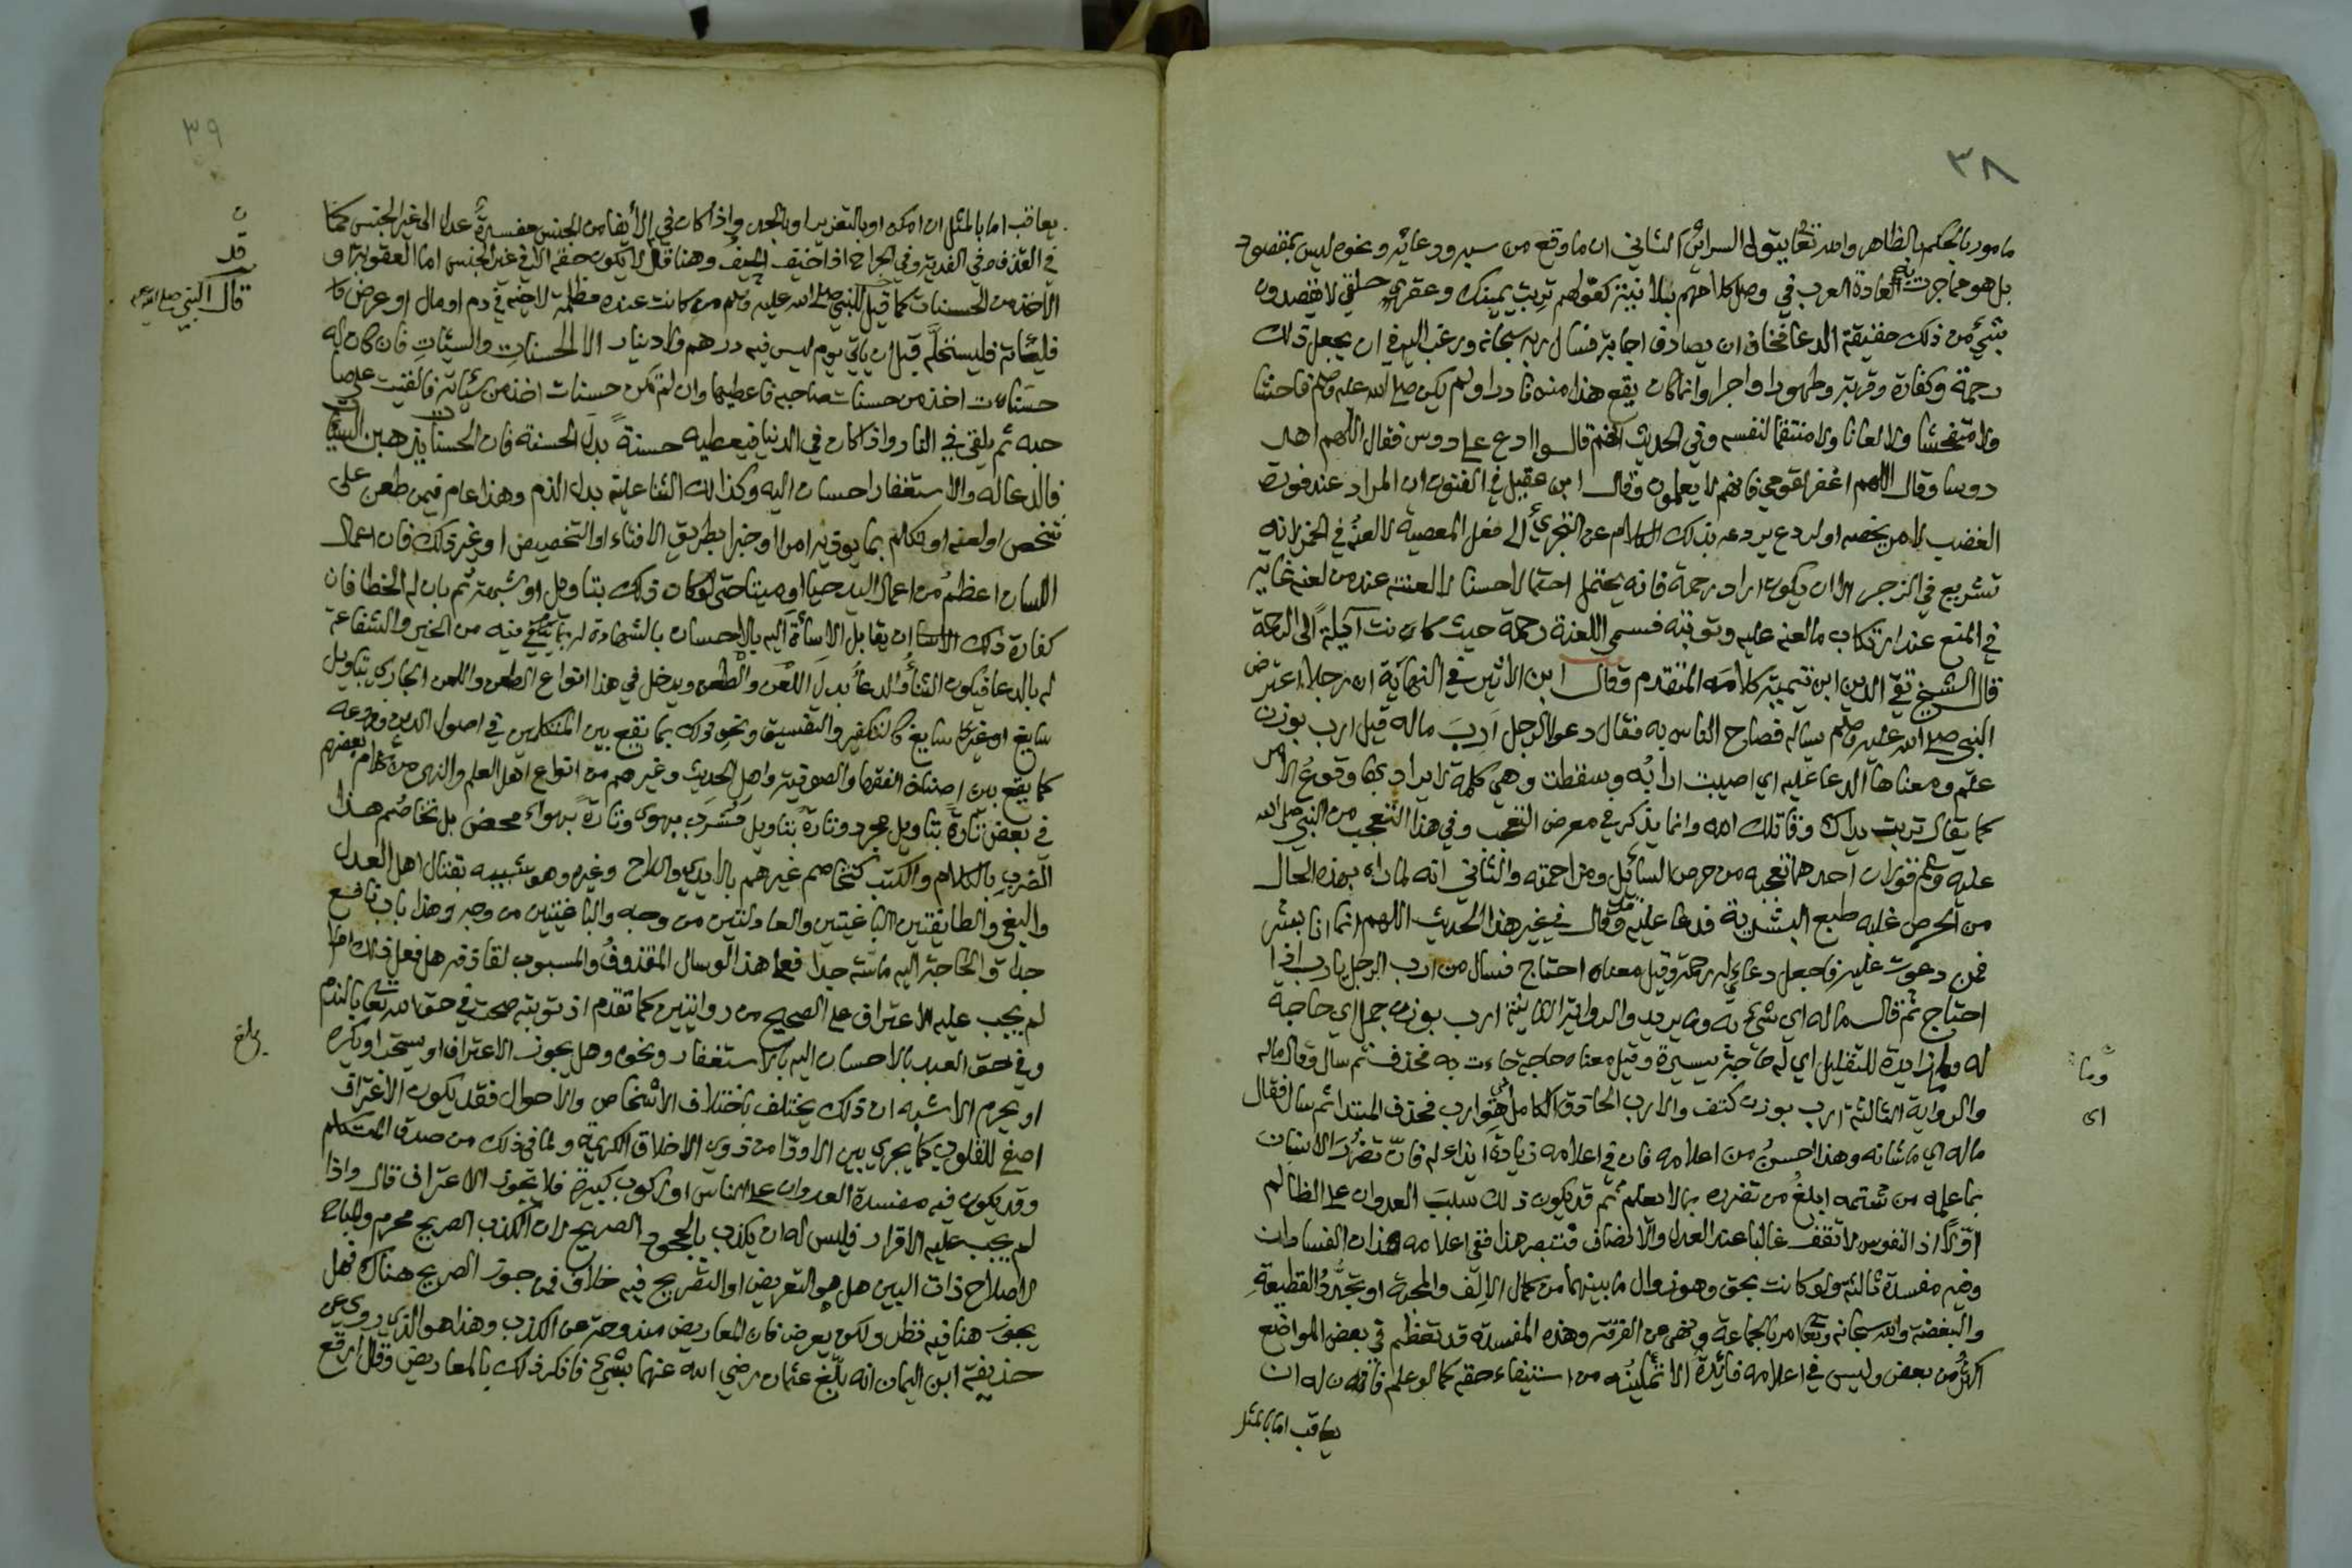 ٣٨
مامور بالحكم بالظاهر والله تعالى يتولى السرائر الثاني ان ما وقع من سبه ودعائه ونحوه ليس بمقصود
بل هو مما جرت به العادة العرب في وصل كلامهم بلا نية كقولهم تربت يمينك وعقرى حلقى لا يقصدون
بشيء من ذلك حقيقة الدعا فخاف ان يصادف اجابة فسال ربه سبحانه ورغب اليه في ان يجعل ذلك
رحمة وكفارة وقربة وطهورا واجرا وانما كان يقع هذا منه نادرا ولم يكن صلى الله عليه وسلم فاحشا
ولا متفحشا ولا لعانا ولا منتقما لنفسه وفي الحديث انهم قالوا ادع على دوس فقال اللهم اهد
دوسا وقال اللهم اغفر لقومي فانهم لا يعلمون وقال ابن عقيل في الفنون ان المراد عند فورة
الغضب لامر يخصه او لردع يردعه بذلك الكلام عن التجري الى فعل المعصية لا لعنه في الخمر لانه
تشريع في الزجر الا ان يكون اراد رحمة فانه يحتمل احتمالا حسنا لا لعنته عند من لعنه غاية
في المنع عند ارتكاب ما لعنه عليه وتوبته فسمى اللعنة رحمة حيث كانت آئلة الى الرحمة
قال الشيخ تقي الدين ابن تيمية كلامه المتقدم وقال ابن الاثير في النهاية ان رجلا اعترض
النبي صلى الله عليه وسلم يساله فصاح الناس به فقال دعوا الرجل أرب ماله قيل ارب بوزن
علم ومعناها الدعا عليه اي اصيبت ارابه وسقطت وهي كلمة لا يراد بها وقوع الامر
كما يقال تربت يداك وقاتلك الله وانما يذكر في معرض التعجب وفي هذا التعجب من النبي صلى الله
عليه وسلم قولان احدهما تعجبه من حرص السائل ومزاحمته والثاني انه لما راه بهذه الحال
من الحرص غلبه طبع البشرية فدعا عليه وقد قال في غير هذا الحديث اللهم انما انا بشر
فمن دعوت عليه فاجعل دعائي له رحمة وقيل معناه احتاج فسال من ارب الرجل يارب اذا
احتاج ثم قال ماله اي شيء به وما يريد والرواية الثانية ارب بوزن جمل اي حاجة
له وما زايدة للتقليل اي له حاجة يسيرة وقيل معناه حاجة جاءت به فحذف ثم سال وقال ماله
والرواية الثالثة ارب بوزن كتف والارب الحاذق الكامل اي هو ارب فحذف المبتدا ثم سال فقال
ماله اي ما شانه وهذا احسن من اعلامه فان في اعلامه زيادة ايذاء له فان تضرر الانسان
بما علمه من شتمه ابلغ من تضرره بما لا يعلم ثم قد يكون ذلك سبب العدوان على الظالم
اولا اذ النفوس لا تقف غالبا عند العدل والانصاف فتبصر هذا ففي اعلامه هذان الفسادان
وفيه مفسدة ثالثة ولو كانت بحق وهو زوال ما بينهما من كمال الالف والمحبة او تجدد القطيعة
والبغضة والله سبحانه وتعالى امر بالجماعة ونهى عن الفرقة وهذه المفسدة قد تعظم في بعض المواضع
اكثر من بعض وليس في اعلامه فائدة الا تمكينه من استيفاء حقه كما لو علم فانه له ان
يعاقب اما بالمثل
وما
اى
٣٩
يعاقب اما بالمثل ان امكن او بالتعزير او بالحد واذا كان في الايفا من الجنس مفسدة عدل الى غير الجنس كما
في القذف وفي الفدية وفي الجراح اذا خيف الحيف وهنا قد لا يكون حقه الا في غير الجنس اما العقوبة او
الاخذ من الحسنات كما قيل للنبي صلى الله عليه وسلم من كانت عنده مظلمة لاخيه في دم او مال او عرض
فلياته فليستحله قبل ان ياتي يوم ليس فيه درهم ولا دينار الا الحسنات والسيئات فان كان له
حسنات اخذ من حسنات صاحبه فاعطيها وان لم تكن حسنات اخذ من سيئاته فالقيت على صا
حبه ثم يلقى في النار واذا كان في الدنيا فيعطيه حسنة بدل الحسنة فان الحسنات يذهبن السيئات
فالدعا له والاستغفار احسان اليه وكذلك الثنا عليه بدل الذم وهذا عام فيمن طعن على
شخص او لعنه او تكلم بما يوذيه امرا او خبرا بطريق الافتاء او التخصيص او غير ذلك فان اعمال
اللسان اعظم من اعمال اليد حيا او ميتا حتى لو كان ذلك بتاويل او شبهة ثم بان له الخطا فان
كفارة ذلك ان يقابل الاساءة اليه بالاحسان بالشهادة له بما فيه من الخير والشفاعة
له بالدعا فيكون الثنا والدعا بدل اللعن والطعن ويدخل في هذا انواع الطعن واللعن الجاري بتاويل
سايغ او غير سايغ كالتكفير والتفسيق ونحو ذلك مما يقع بين المتكلمين في اصول الدين وفروعه
كما يقع بين اصناف الفقها والصوفية واهل الحديث وغيرهم من انواع اهل العلم والنهى من كلام بعضهم
في بعض تارة بتاويل مجرد وتارة بتاويل مشرب بهوى وتارة بهواء محض بل تخاصم هذا
الضرب بالكلام والكتب كتخاصم غيرهم بالايدي والسلاح وغيره وهو شبيه بقتال اهل العدل
والبغي والطايفتين الباغيتين والعادلتين من وجه والباغيتين من وجه وهذا باب نافع
جدا والحاجة اليه ماسة جدا فعلى هذا لو سال المقذوف والمسبوب لقاذفه هل فعل ذلك ام لا
لم يجب عليه الاعتراف على الصحيح من روايتين كما تقدم اذ توبته صحت في حق الله تعالى بالندم
وفي حق العبد بالاحسان اليه بالاستغفار ونحوه وهل يجوز الاعتراف او يستحب او يكره
او يحرم الاشبه ان ذلك يختلف باختلاف الاشخاص والاحوال فقد يكون الاعتراف
اصفى للقلوب كما يجري بين الاودا من ذوي الاخلاق الكريمة ولما في ذلك من صدق المتكلم
وقد يكون فيه مفسدة العدوان على الناس او ركوب كبيرة فلا يجوز الاعتراف قال واذا
لم يجب عليه الاقرار فليس له ان يكذب بالجحود الصريح لان الكذب الصريح محرم والمباح
لاصلاح ذات البين هل هو التعريض او التصريح فيه خلاف فمن جوز الصريح هناك فهل
يجوز هنا فيه نظر ولكن يعرض فان المعاريض مندوحة عن الكذب وهذا هو الذي روي عن
حذيفة ابن اليمان انه بلغ عثمان رضي الله عنهما بشيء فانكر ذلك بالمعاريض وقال ارقع
قد
قال النبي صلى الله عليه
بلغ